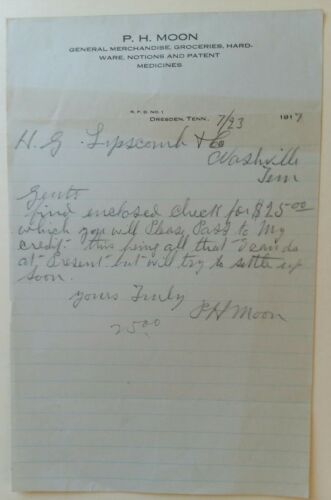 P. H. MOON
GENERAL MERCHANDISE, GROCERIES, HARD-
WARE, NOTIONS AND PATENT
MEDICINES
R. F. D. NO. 1
DRESDEN, TENN. 7/23 1917
H. G. Lipscomb & Co
Nashville
Tenn
Gents
find enclosed check for $25.00
which you will Please Pass to My
credit this being all that I can do
at Present but will try to settle up
soon.
yours Truly
P H Moon
25.00